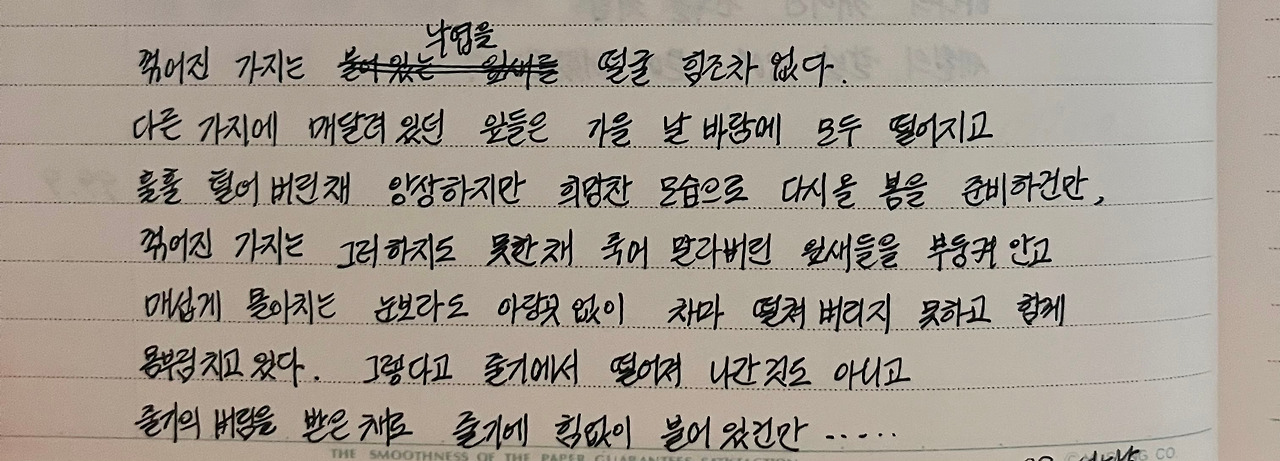 낙엽을
꺾어진 가지는 붙어 있는 잎새를 떨굴 힘조차 없다.
다른 가지에 매달려 있던 잎들은 가을 날 바람에 모두 떨어지고
훌훌 털어 버린채 앙상하지만 희망찬 모습으로 다시올 봄을 준비하건만,
꺾어진 가지는 그러하지도 못한채 죽어 말라버린 잎새들을 부둥켜 안고
매섭게 몰아치는 눈보라도 아랑곳 없이 차마 떨쳐 버리지 못하고 함께
몸부림 치고 있다. 그렇다고 줄기에서 떨어져 나간 것도 아니고
줄기의 버림을 받은 채로 줄기에 힘없이 붙어 있건만 .....
THE SMOOTHNESS OF THE PAPER GUARANTEES
CO.